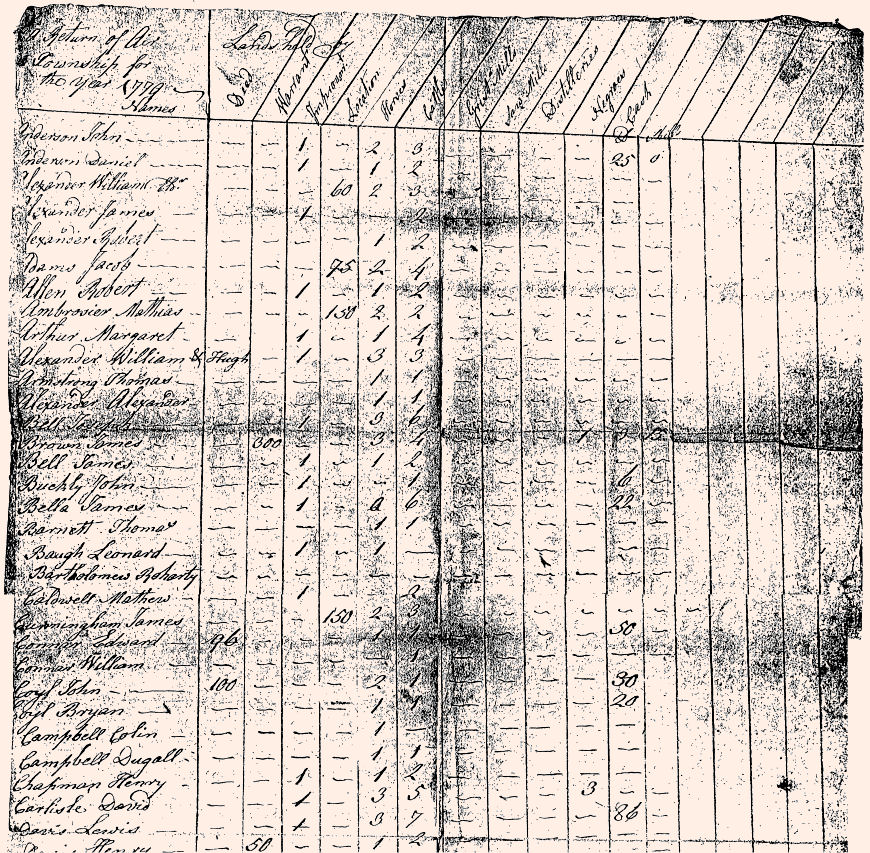 A Return of Air
Township for
the Year 1779
Names
Lands held by
Deed Warrant Improvmt Location Horses Cattle Grist Mills Saw Mills Distilleries Negroes Cash
Anderson John — — — 1 — 2 3 — — — — — —
Anderson Daniel — — 1 — 1 2 — — — — 25 0
Alexander William — — — 60 2 3 — — — — — —
Alexander James — — 1 — — 2 — — — — — —
Alexander Robert — — — — 1 2 — — — — — —
Adams Jacob — — — 75 2 4 — — — — — —
Allen Robert — — 1 — 1 2 — — — — — —
Ambrosier Mathias — — — 150 2 2 — — — — — —
Arthur Margaret — — 1 — 1 4 — — — — — —
Alexander William & Hugh — 1 — 3 3 — — — — — —
Armstrong Thomas — — — — 1 1 — — — — — —
Alexander Alexander — — — — 1 1 — — — — — —
Bell — — 1 — 3 6 — — — 1 3 15
Brown James — 300 — — 3 4 — — — — — —
Bell James — — 1 — 1 2 — — — — — —
Buchly John — — 1 — — 1 — — — — 6 —
Bella James — — 1 — 6 — — — — 22 —
Barnett Thomas — — — — 1 1 — — — — — —
Baugh Leonard — — 1 — 1 — — — — — — —
Bartholomew Roharty — — — — — — — — — — — —
Caldwell Mathew — — 1 — — 2 — — — — — —
Cunningham James — — — 150 2 3 — — — — — —
Connor Edward 96 — — — 1 1 — — — — 50 —
William — — — — — 1 — — — — — —
Coyl John 100 — — — 2 1 — — — — 30 —
Coyl Bryan — — — — 1 1 — — — — 20 —
Campbell Colin — — — — 1 — — — — — — —
Campbell Dugall — — — — 1 1 — — — — — —
Chapman Henry — — 1 — 1 2 — — — — — —
Carlisle David — — 1 — 3 5 — — — 3 — —
Davis Lewis — — 1 — 3 7 — — — — 86 —
Henry — 50 — — 1 2 — — — — — —